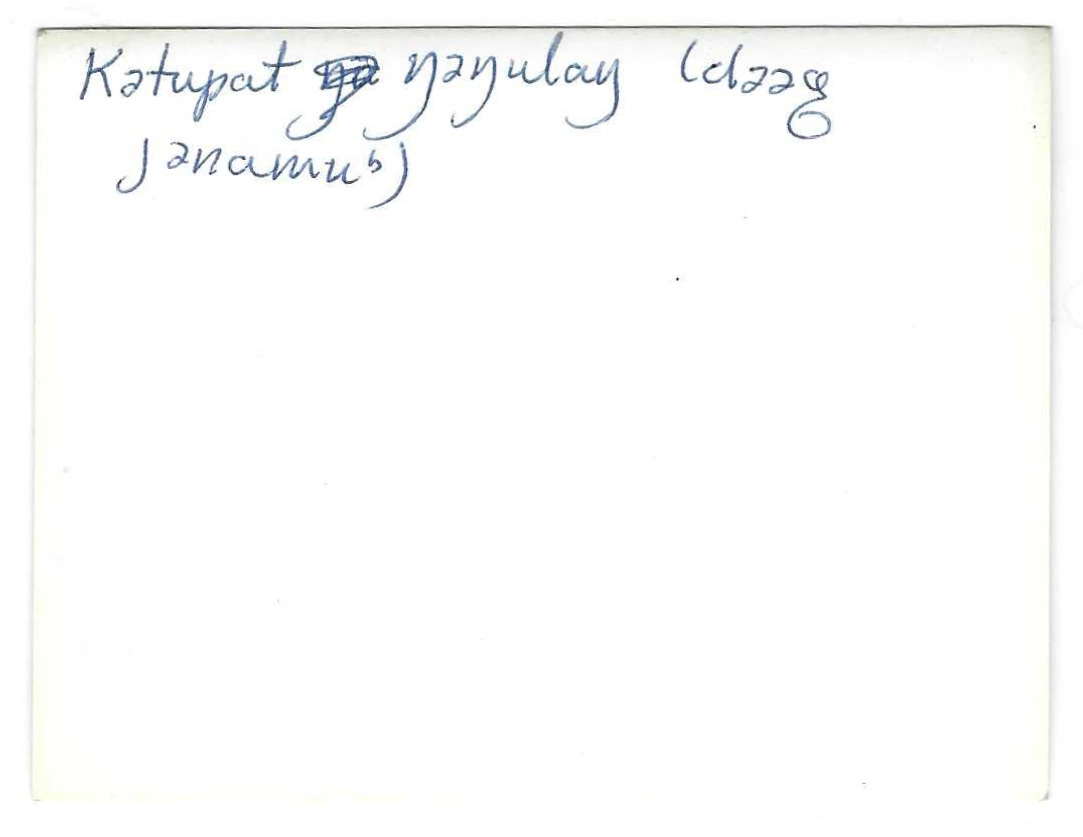 Kətupat ŋəŋulaŋ (dəəg
jənamuᵇ)